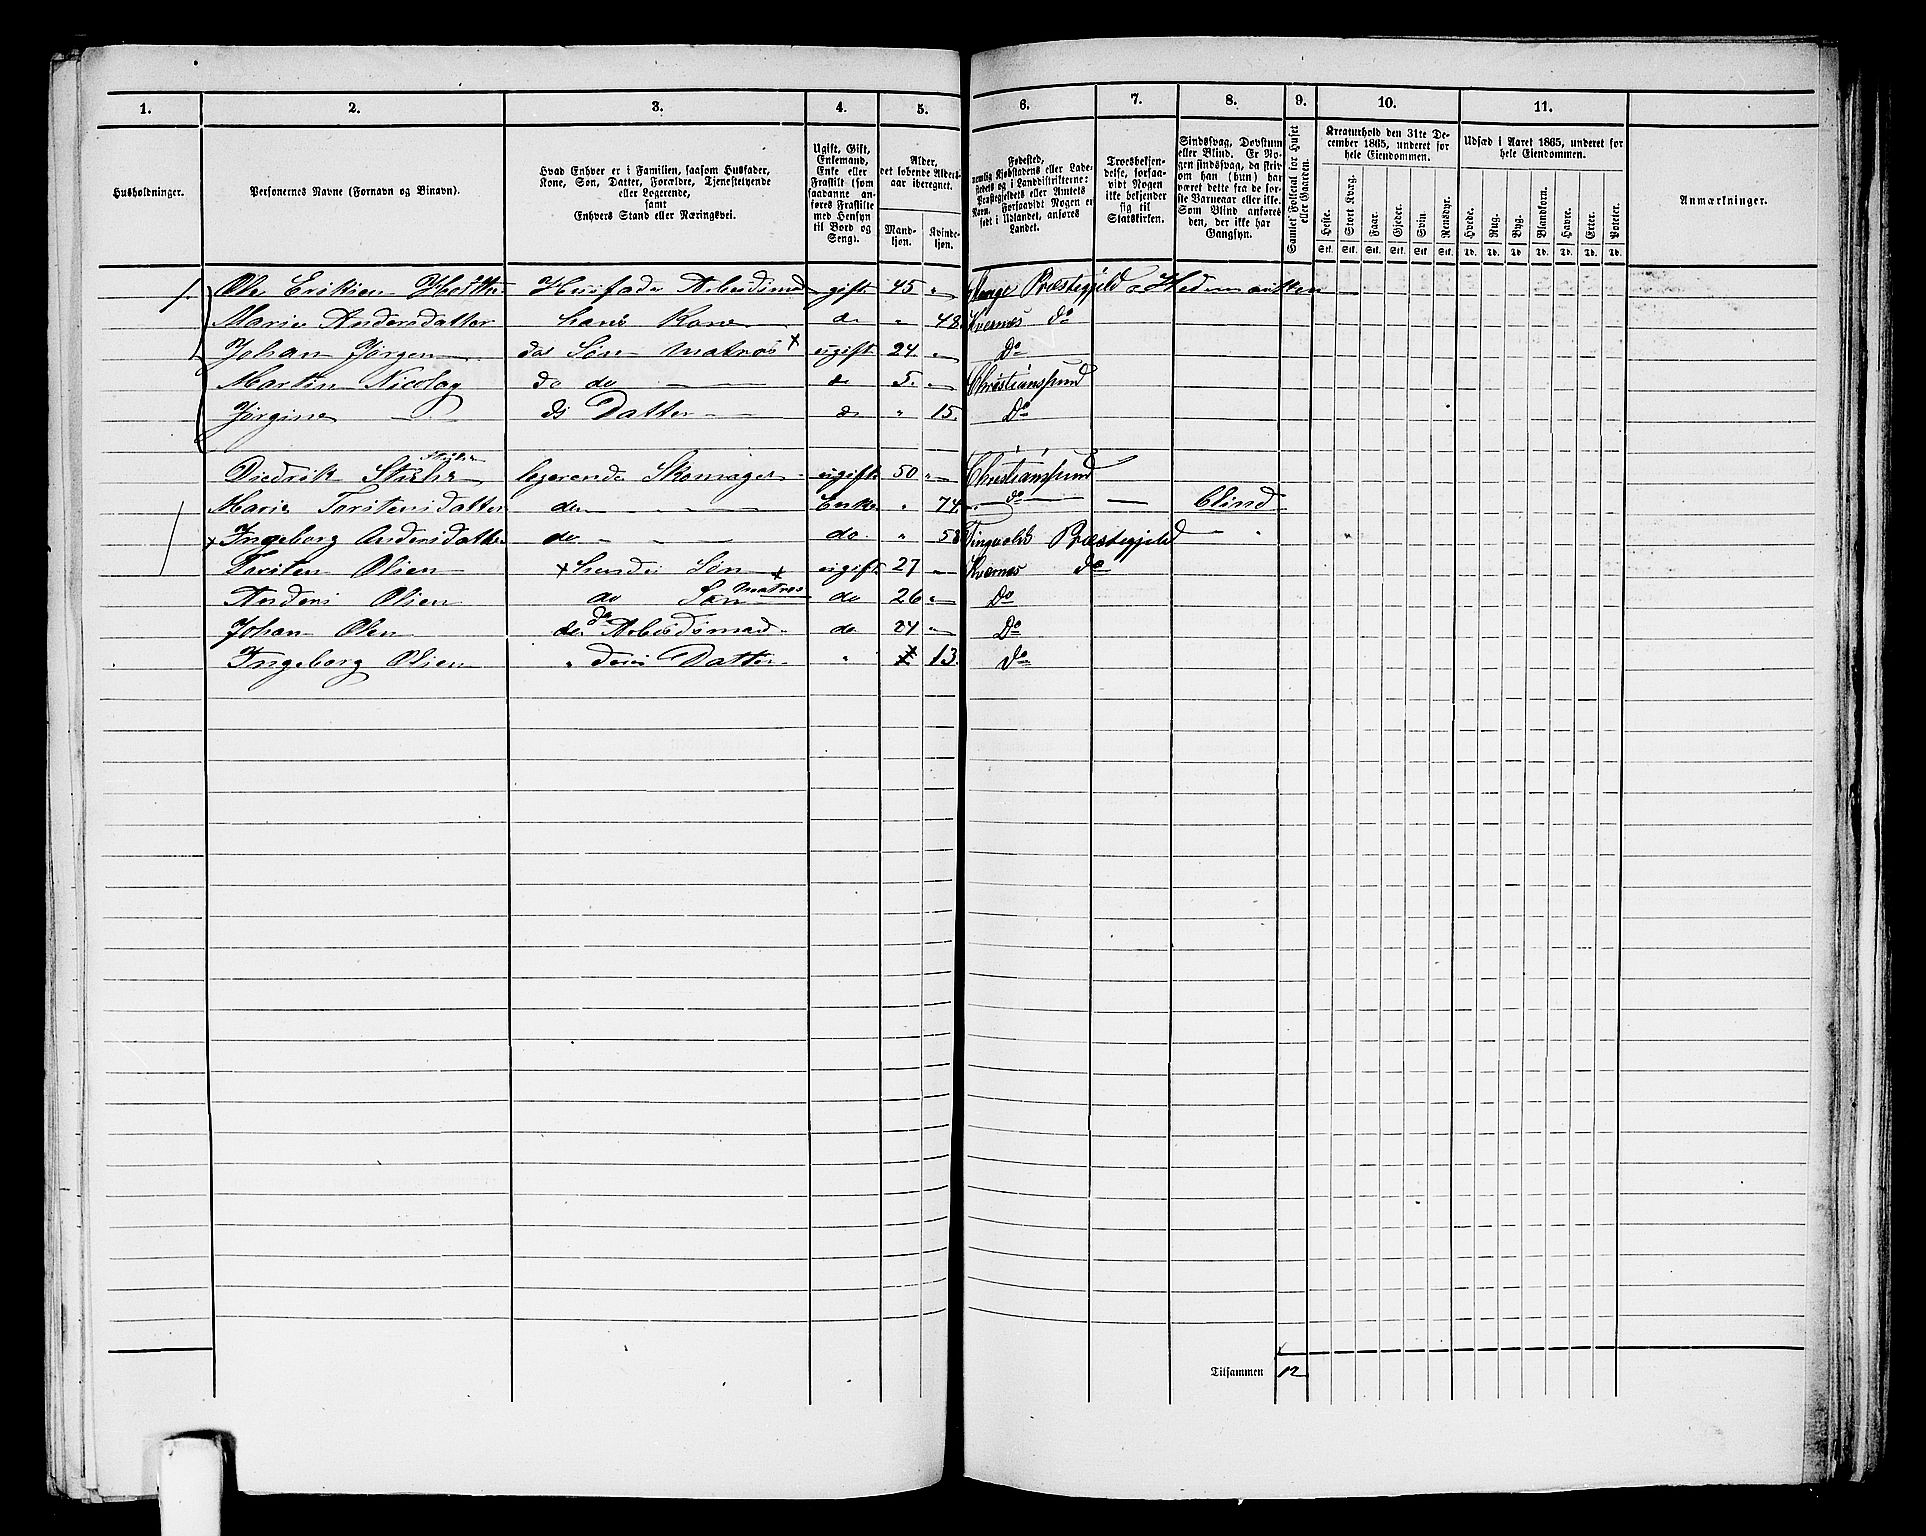 1. 2. 3. 4. 5. 6. 7. 8. 9. 10. 11.
Husholdninger.
Personernes Navne (Fornavn og Binavn).
Hvad Enhver er i Familien, saasom Husfader,
Kone, Søn, Datter, Forældre, Tjenestetyende
eller Logerende,
samt
Enhvers Stand eller Næringsvei.
Ugift, Gift,
Enkemand,
Enke eller
Fraskilt (som
saadanne an-
føres Fraskilte
med Hensyn
til Bord og
Seng).
Alder,
det løbende Alders-
aar iberegnet.
Mand-
kjøn.
Kvinde-
kjøn.
Fødested,
nemlig Kjøbstadens eller Lade-
stedets og i Landdistrikterne:
Præstegjeldets eller Amtets
Navn. Forsaavidt Nogen er
født i Udlandet, anføres
Landet.
Troesbekjen-
delse, forsaa-
vidt Nogen
ikke bekjender
sig til
Statskirken.
Sindssvag, Døvstum
eller Blind. Er No-
gen sindssvag, da skriv
om han (hun) har
været dette fra de før-
ste Barneaar eller ikke.
Som Blind anføres
den, der ikke har
Gangsyn.
Samlet Folketal for Huset
eller Gaarden.
Kreaturhold den 31te De-
cember 1865, underet for
hele Eiendommen.
Heste. Stort Kvæg. Faar. Gjeder. Svin. Rensdyr.
Stk. Stk. Stk. Stk. Stk. Stk.
Udsæd i Aaret 1865, underet for
hele Eiendommen.
Hvede. Rug. Byg. Blandkorn. Havre. Erter. Poteter.
Td. Td. Td. Td. Td. Td. Td.
Anmærkninger.
1. Ole Eriksen Husfader Arbeidsmand gift 45 " Præstegjeld Hedemarken
Marie Andersdatter hans Kone do " 48 Kvernes do
Johan Jørgen des Søn Matros x ugift 24 " Do
Martin Nicolay do do do 5 " Christianssund
Jørgine ds Datter do " 15 Do
Diedrik logerende Skomager ugift 50 " Christianssund
Marie Torstensdatter do Enke " 74 do Blind
x Ingeborg Andersdatter do do " 58 Tingvold Præstegjeld
Torsten Olsen x hendes Søn x ugift 27 " Kvernes do
Anders Olsen do Søn Matros do 26 " Do
Johan Olsen do do Arbeidsmand do 24 " Do
Ingeborg Olsen " deres Datter " 13 Do
Tilsammen 12